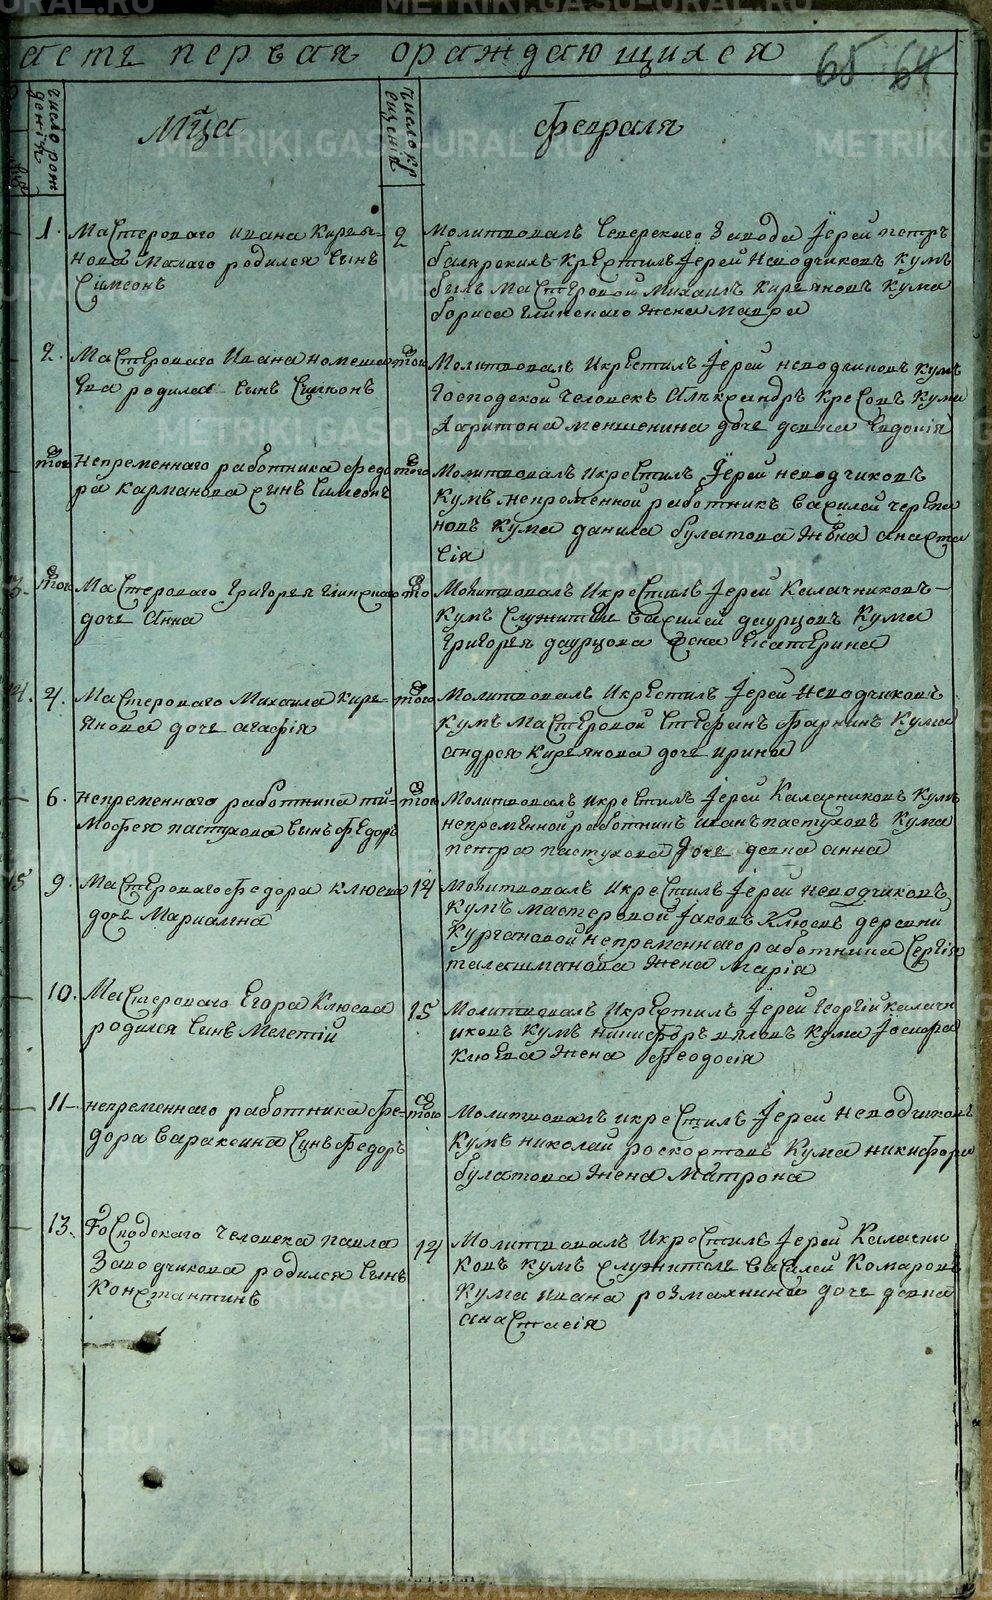 асть первая ораждающихся
65 64
число рож
дения
Мца
число кр
щения
февраля
1. Мастероваго Ивана Кирья-
нова Малаго родился Сынъ
Симеонъ
2 Молитвовалъ Северскаго Завода Іерей Петръ
Крестилъ Іерей Неводчиковъ Кумъ
былъ Мастеровой Михаилъ Кирьяновъ Кума
бориса Глинскаго жена Мавра
2. Мастероваго Ивана
родился Сынъ Симеонъ
того Молитвовалъ Икрестилъ Іерей Неводчиковъ Кумъ
Господской Человекъ Александръ Кума
Харитона Меншенина дочь девка Евдокія
того непременнаго работника Федо
ра Карманова Сынъ Симеонъ
того Молитвовалъ Икрестилъ Іерей неводчиковъ
Кумъ непременной работникъ Василей черепа
новъ Кума данила булатова Жена анаста
сія
3. того Мастероваго Григорья Глинскаго
дочь Анна
того Молитвовалъ Икрестилъ Іерей Калачниковъ
Кумъ Служитель Василей даурцовъ Кума
Григорья даурцова жена Екатерина
4. Мастероваго Михаила Кирь-
янова дочь агафія
того Молитвовалъ Икрестилъ Іерей Неводчиковъ
Кумъ Мастеровой Стефанъ Кума
андрея Кирьянова дочь ирина
6. непременнаго работника ти-
мофея пастухова Сынъ Федоръ
того Молитвовалъ Икрестилъ Іерей Калачниковъ Кумъ
непременной работникъ иванъ пастуховъ Кума
петра пастухова дочь девка анна
15 9. Мастероваго Федора клюева
дочь Мариамна
14 Молитвовалъ Икрестилъ Іерей неводчиковъ
Кумъ Мастеровой Іаковъ Клюевъ деревни
Кургановой непременнаго работника Сергія
талашманова Жена Марія
10. Мастероваго Егора Клюева
родился Сынъ Мелетій
15 Молитвовалъ Икрестилъ Іерей Георгій Калачн
иковъ Кумъ Никифоръ Кума Іосифа
Клюева Жена Феодосія
11 непременнаго работника Фе-
дора Вараксина Сынъ Федоръ
того Молитвовалъ икрестилъ Іерей Неводчиковъ
Кумъ николай Кума никифора
булатова Жена Матрона
13. Господскаго Человека павла
Заводчикова родился Сынъ
Константинъ
14 Молитвовалъ Икрестилъ Іерей Калачни
ковъ Кумъ Служитель Василей Комаровъ
Кума ивана розмахнина дочь девка
анастасія
METRIKI.GASO-URAL.RU